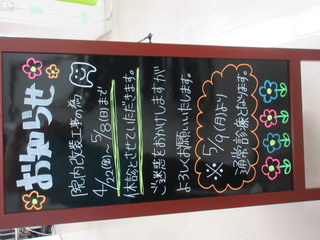 お知らせ
院内改装工事の為
4/22(金)〜5/8(日)まで
休診とさせていただきます。
ご迷惑をおかけしますが
よろしくお願いいたします。
※5/9(月)より
通常診療となります。